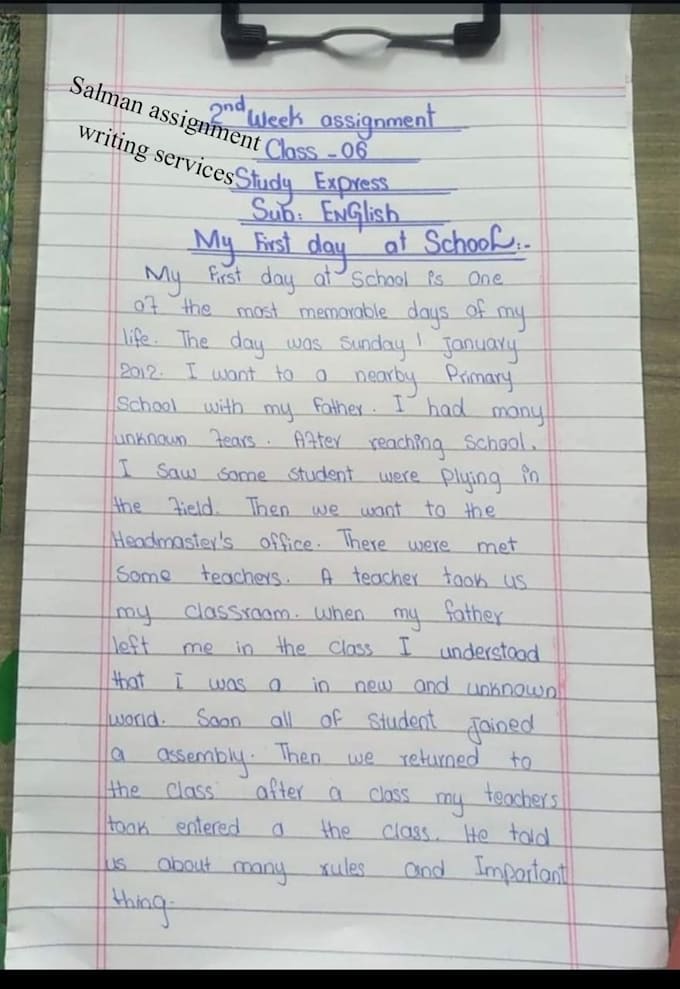 Salman assignment
writing services
2nd Week assignment
Class - 06
Study Express
Sub: ENGlish
My First day at School:-
My first day at School is one
of the most memorable days of my
life. The day was Sunday 1 January
2012. I want to a nearby Primary
School with my Father. I had many
unknown fears. After reaching School.
I Saw some student were Plying in
the field. Then we want to the
Headmaster's office. There were met
Some teachers. A teacher took us
my classroom. when my father
left me in the class I understood
that I was a in new and unknown
world. Soon all of Student Joined
a assembly. Then we returned to
the class after a class my teachers
took entered a the class. He told
us about many rules and Important
thing.